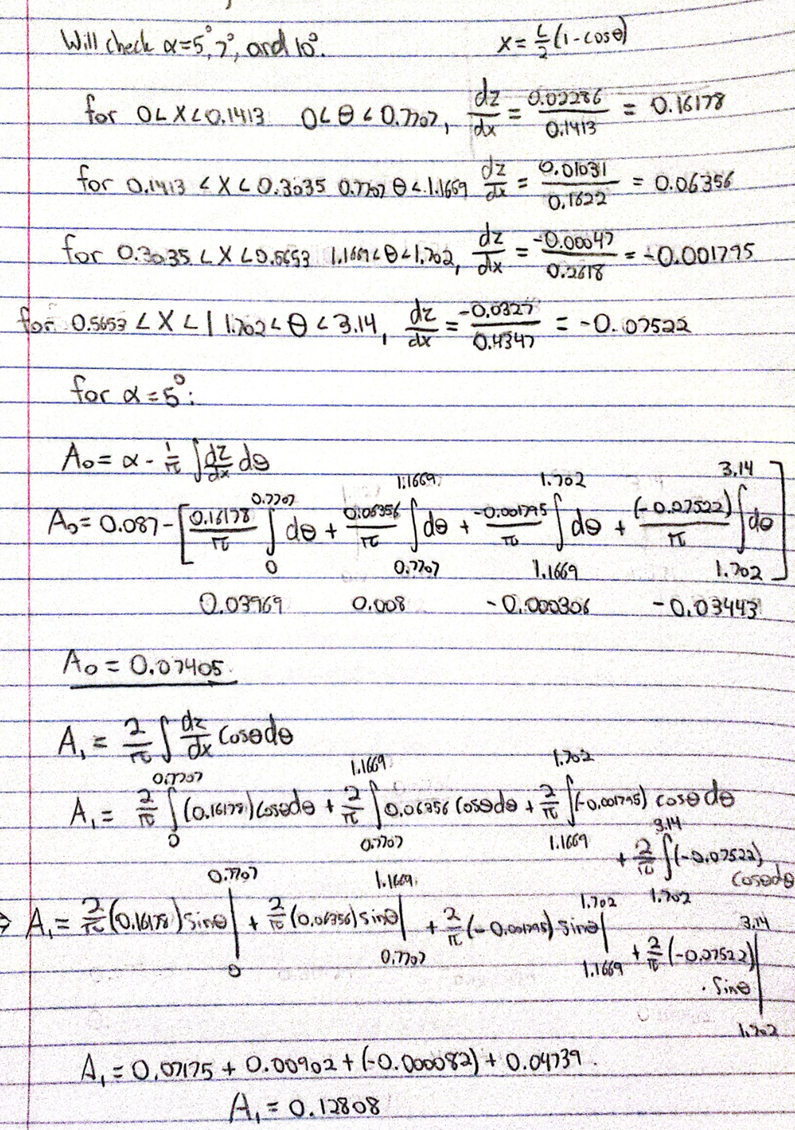 Will check α=5°, 7°, and 10°. x = L/2 (1-cosθ)
for 0<x<0.1413 0<θ<0.7707, dz/dx = 0.02286/0.1413 = 0.16178
for 0.1413<x<0.3035 0.7707 θ<1.1669 dz/dx = 0.01031/0.1622 = 0.06356
for 0.3035<x<0.5653 1.1669<θ<1.702, dz/dx = -0.00047/0.2618 = -0.001795
for 0.5653<x<1 1.702<θ<3.14, dz/dx = -0.0327/0.4347 = -0.07522
for α=5°:
A₀ = α - 1/π ∫ dz/dx dθ
A₀ = 0.087 - [0.16178/π ∫₀^0.7707 dθ + 0.06356/π ∫_0.7707^1.1669 dθ + -0.001795/π ∫_1.1669^1.702 dθ + (-0.07522)/π ∫_1.702^3.14 dθ]
0.03969 0.008 -0.000306 -0.03443
A₀ = 0.07405.
A₁ = 2/π ∫ dz/dx cosθdθ
A₁ = 2/π ∫₀^0.7707 (0.16178)cosθdθ + 2/π ∫_0.7707^1.1669 0.06356 cosθdθ + 2/π ∫_1.1669^1.702 (-0.001795) cosθdθ
+ 2/π ∫_1.702^3.14 (-0.07522) cosθdθ
⇒ A₁ = 2/π (0.16178) sinθ|₀^0.7707 + 2/π (0.06356) sinθ|_0.7707^1.1669 + 2/π (-0.001795) sinθ|_1.1669^1.702
+ 2/π (-0.07522) · sinθ|_1.702^3.14
A₁ = 0.07175 + 0.00902 + (-0.000082) + 0.04739.
A₁ = 0.12808